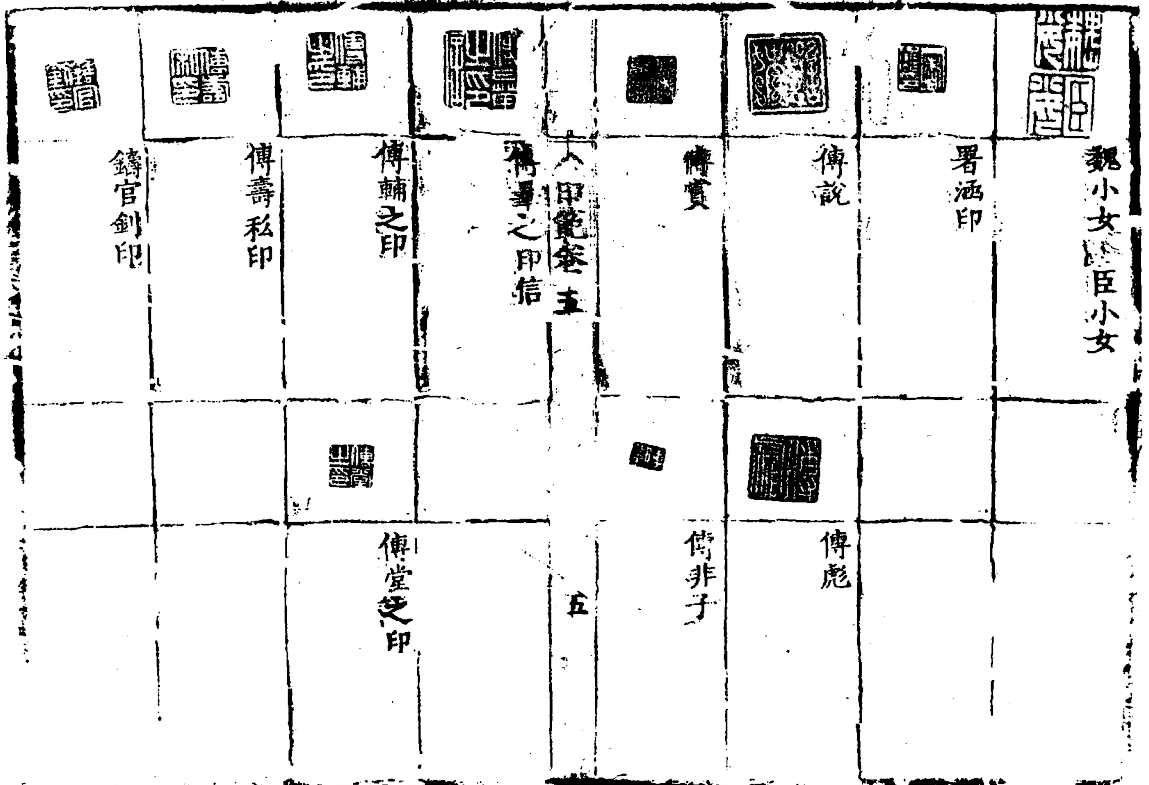 魏小女 臣小女
署涵印
傅說
傅彪
傅賞
傅非子
印範卷五
五
傅之印信
傅輔之印
傅堂之印
傅壽私印
鑄官釗印